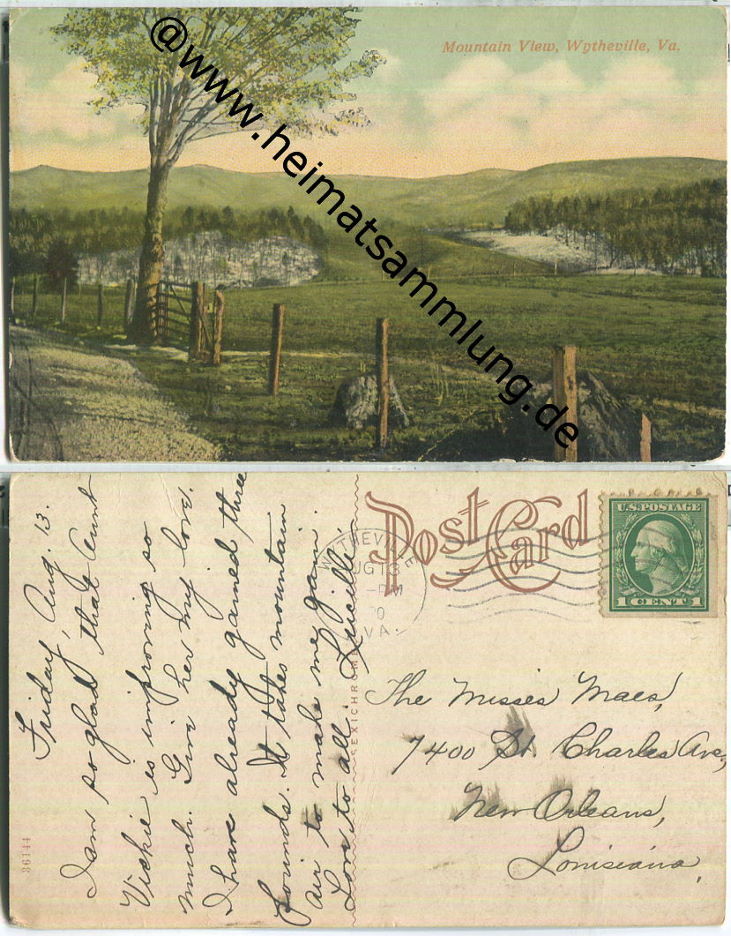 Mountain View, Wytheville, Va.
@www.heimatsammlung.de
Friday, Aug. 13.
I am so glad that Aunt
Vickie is improving so
much. Give her my love.
I have already gained three
pounds. It takes mountain
air to make me gain.
Love to all. Lucille.
36144
Post Card
WYTHEVILLE
AUG 13
-PM
VA.
U.S. POSTAGE
1 CENT 1
The Misses Maes,
7400 St. Charles Ave,
New Orleans,
Louisiana,